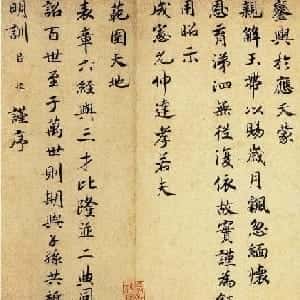 鑾輿於應天蒙
親解玉帶以賜歲月飄忽緬懷
恩育涕泗無從復依故實謹為
用昭示
成憲允仲達孝若夫
範圍天地
表章六經與三才比隆並二典同
詔百世至于萬世則期與子孫共
明訓臣 謹序